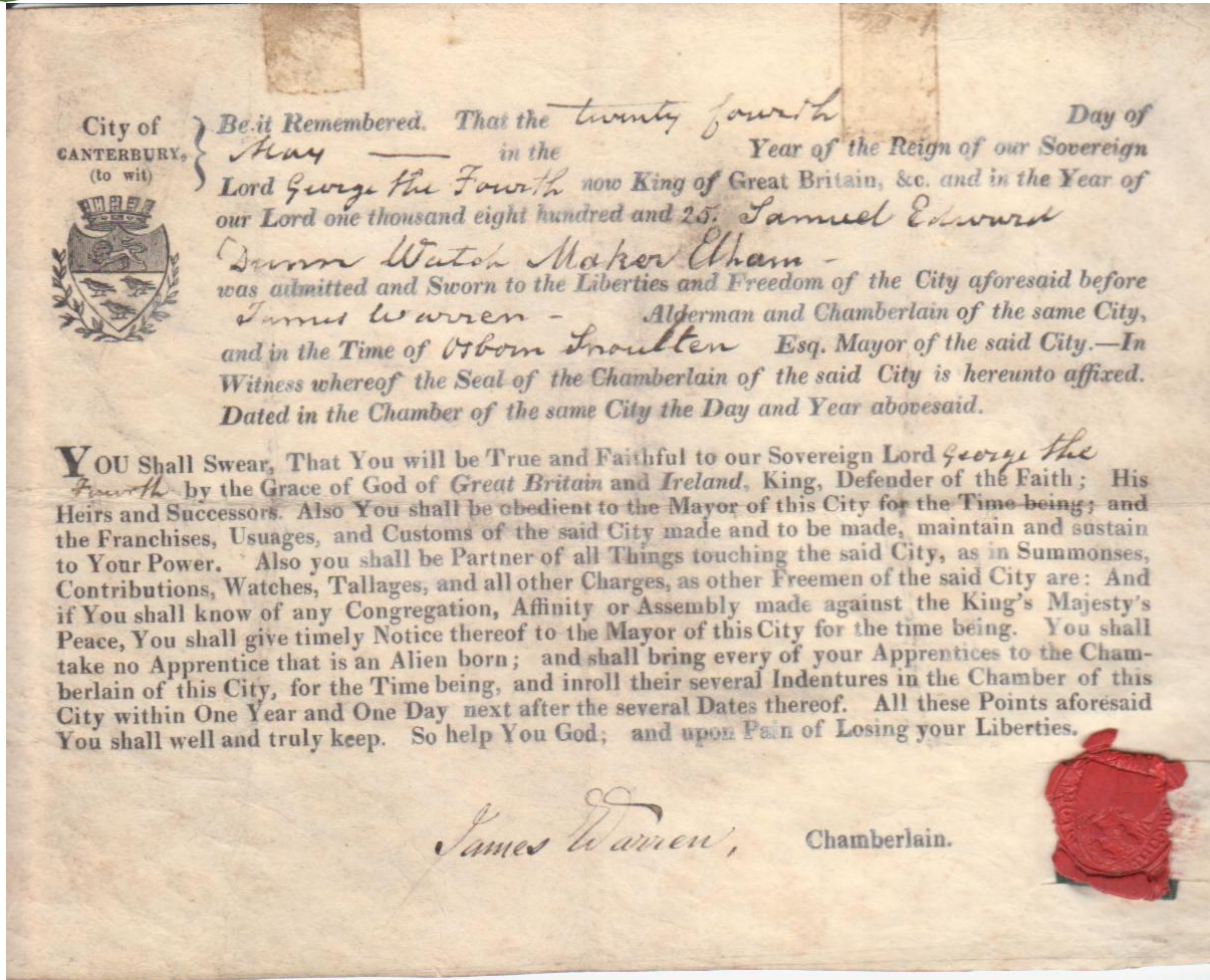 City of
CANTERBURY,
(to wit)
Be it Remembered. That the twenty fourth Day of
May — in the Year of the Reign of our Sovereign
Lord George the Fourth now King of Great Britain, &c. and in the Year of
our Lord one thousand eight hundred and 25. Samuel Edward
Dunn Watch Maker Elham -
was admitted and Sworn to the Liberties and Freedom of the City aforesaid before
James Warren - Alderman and Chamberlain of the same City,
and in the Time of Osborn Snoulten Esq. Mayor of the said City.—In
Witness whereof the Seal of the Chamberlain of the said City is hereunto affixed.
Dated in the Chamber of the same City the Day and Year abovesaid.
YOU Shall Swear, That You will be True and Faithful to our Sovereign Lord George the
Fourth by the Grace of God of Great Britain and Ireland, King, Defender of the Faith; His
Heirs and Successors. Also You shall be obedient to the Mayor of this City for the Time being; and
the Franchises, Usuages, and Customs of the said City made and to be made, maintain and sustain
to Your Power. Also you shall be Partner of all Things touching the said City, as in Summonses,
Contributions, Watches, Tallages, and all other Charges, as other Freemen of the said City are: And
if You shall know of any Congregation, Affinity or Assembly made against the King's Majesty's
Peace, You shall give timely Notice thereof to the Mayor of this City for the time being. You shall
take no Apprentice that is an Alien born; and shall bring every of your Apprentices to the Cham-
berlain of this City, for the Time being, and inroll their several Indentures in the Chamber of this
City within One Year and One Day next after the several Dates thereof. All these Points aforesaid
You shall well and truly keep. So help You God; and upon Pain of Losing your Liberties.
James Warren, Chamberlain.